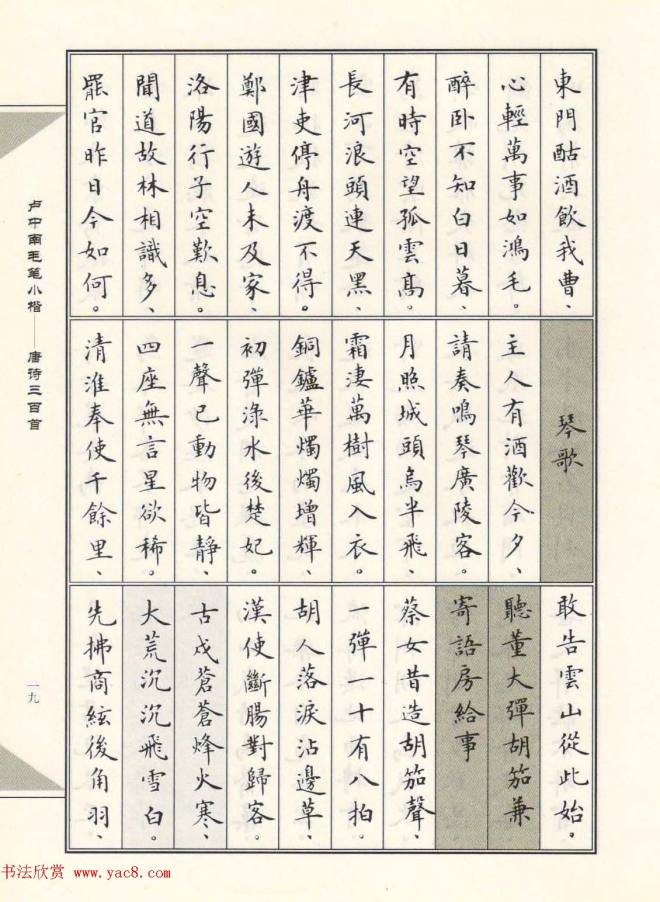 東門酤酒飲我曹、
心輕萬事如鴻毛。
醉卧不知白日暮、
有時空望孤雲高。
長河浪頭連天黑、
津吏停舟渡不得。
鄭國遊人未及家、
洛陽行子空歎息。
聞道故林相識多、
罷官昨日今如何。
琴歌
主人有酒歡今夕、
請奏鳴琴廣陵客。
月照城頭烏半飛、
霜淒萬樹風入衣。
銅鑪華燭燭增輝、
初彈淥水後楚妃。
一聲已動物皆靜、
四座無言星欲稀。
清淮奉使千餘里、
敢告雲山從此始。
聽董大彈胡笳兼
寄語房給事
蔡女昔造胡笳聲、
一彈一十有八拍。
胡人落淚沾邊草、
漢使斷腸對歸客。
古戍蒼蒼烽火寒、
大荒沉沉飛雪白。
先拂商絃後角羽、
卢中南毛笔小楷——唐诗三百首
一九
书法欣赏 www.yac8.com